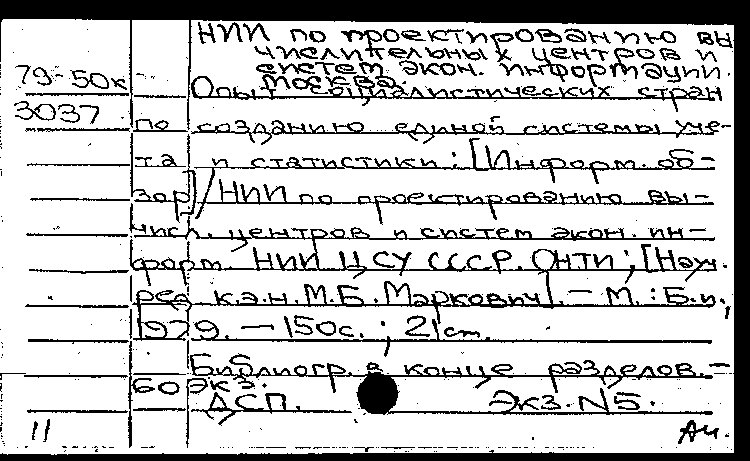 НИИ по проектированию вы
числительных центров и
систем экон. информации.
Москва.
79-50к Опыт социалистических стран
3037 по созданию единой системы уче-
та и статистики : [Информ. об-
зор] / НИИ по проектированию вы-
числ. центров и систем экон. ин-
форм. НИИ ЦСУ СССР. ОНТИ ; [Науч.
ред к.э.н. М.Б. Маркович]. - М. : Б.и.,
1979. - 150с. ; 21см.
Библиогр. в конце разделов. -
60 экз.
ДСП. Экз. N5.
11